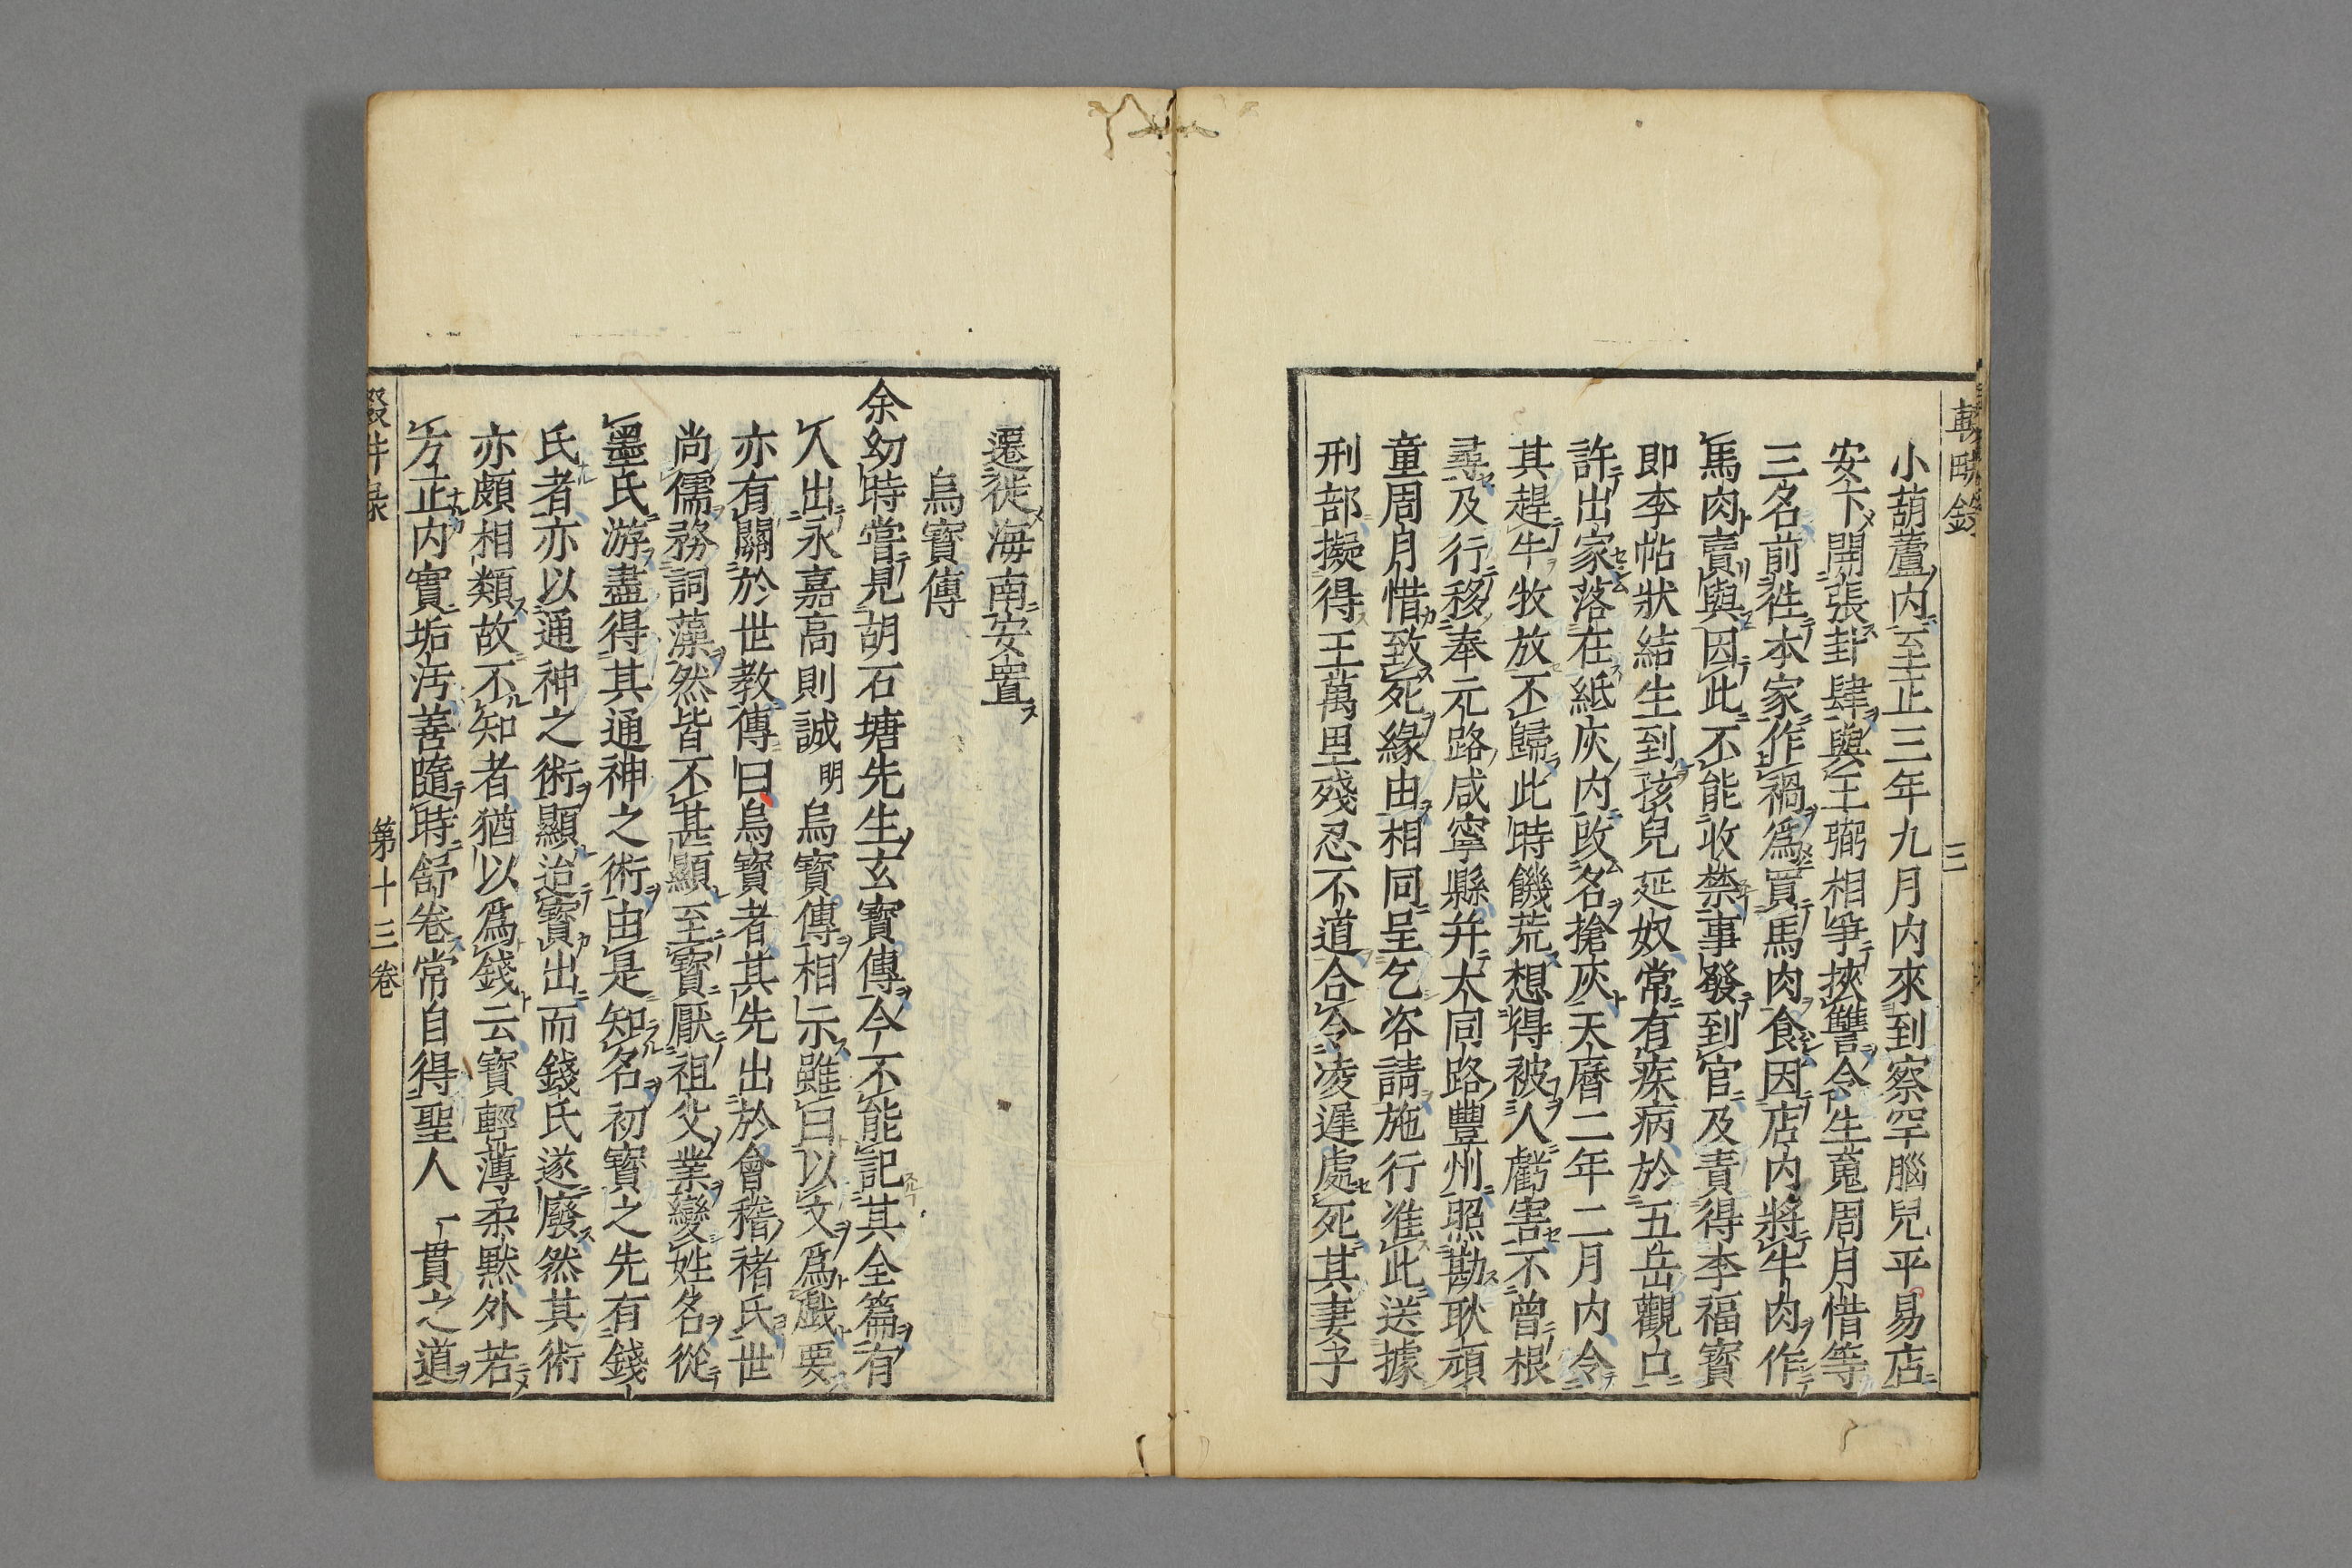 小葫蘆内至正三年九月内來到察罕腦兒平易店
安下開張卦肆與王弼相爭挾讐令生䰟周月惜等
三名前徃本家作禍爲買馬肉食因店内將牛肉作
馬肉賣與因此不能收禁事發到官及責得李福寳
即李帖狀結生到孩兒延奴常有疾病於五岳觀口
許出家落在紙灰内改名搶灰天曆二年二月内令
其趕牛牧放不歸此時饑荒想得被人虧害不曾根
尋及行移奉元路咸寧縣并大同路豐州照勘耿頑
童周月惜致死緣由相同呈乞咨請施行准此送據
刑部擬得王萬里殘忍不道合令凌遲處死其妻子
遷徙海南安置
烏寳傳
余幼時嘗見胡石塘先生玄寳傳今不能記其全篇有
人出永嘉高則誠明烏寳傳相示雖曰以文爲戲要
亦有關於世教傳曰烏寳者其先出於會稽褚氏世
尚儒務詞藻然皆不甚顯至寳厭祖父業變姓名從
墨氏游盡得其通神之術由是知名初寳之先有錢
氏者亦以通神之術顯迨寳出而錢氏遂廢然其術
亦頗相類故不知者猶以爲錢云寳輕薄柔默外若
方正内實垢汚善隨時舒卷常自得聖人一貫之道
第十三卷
三